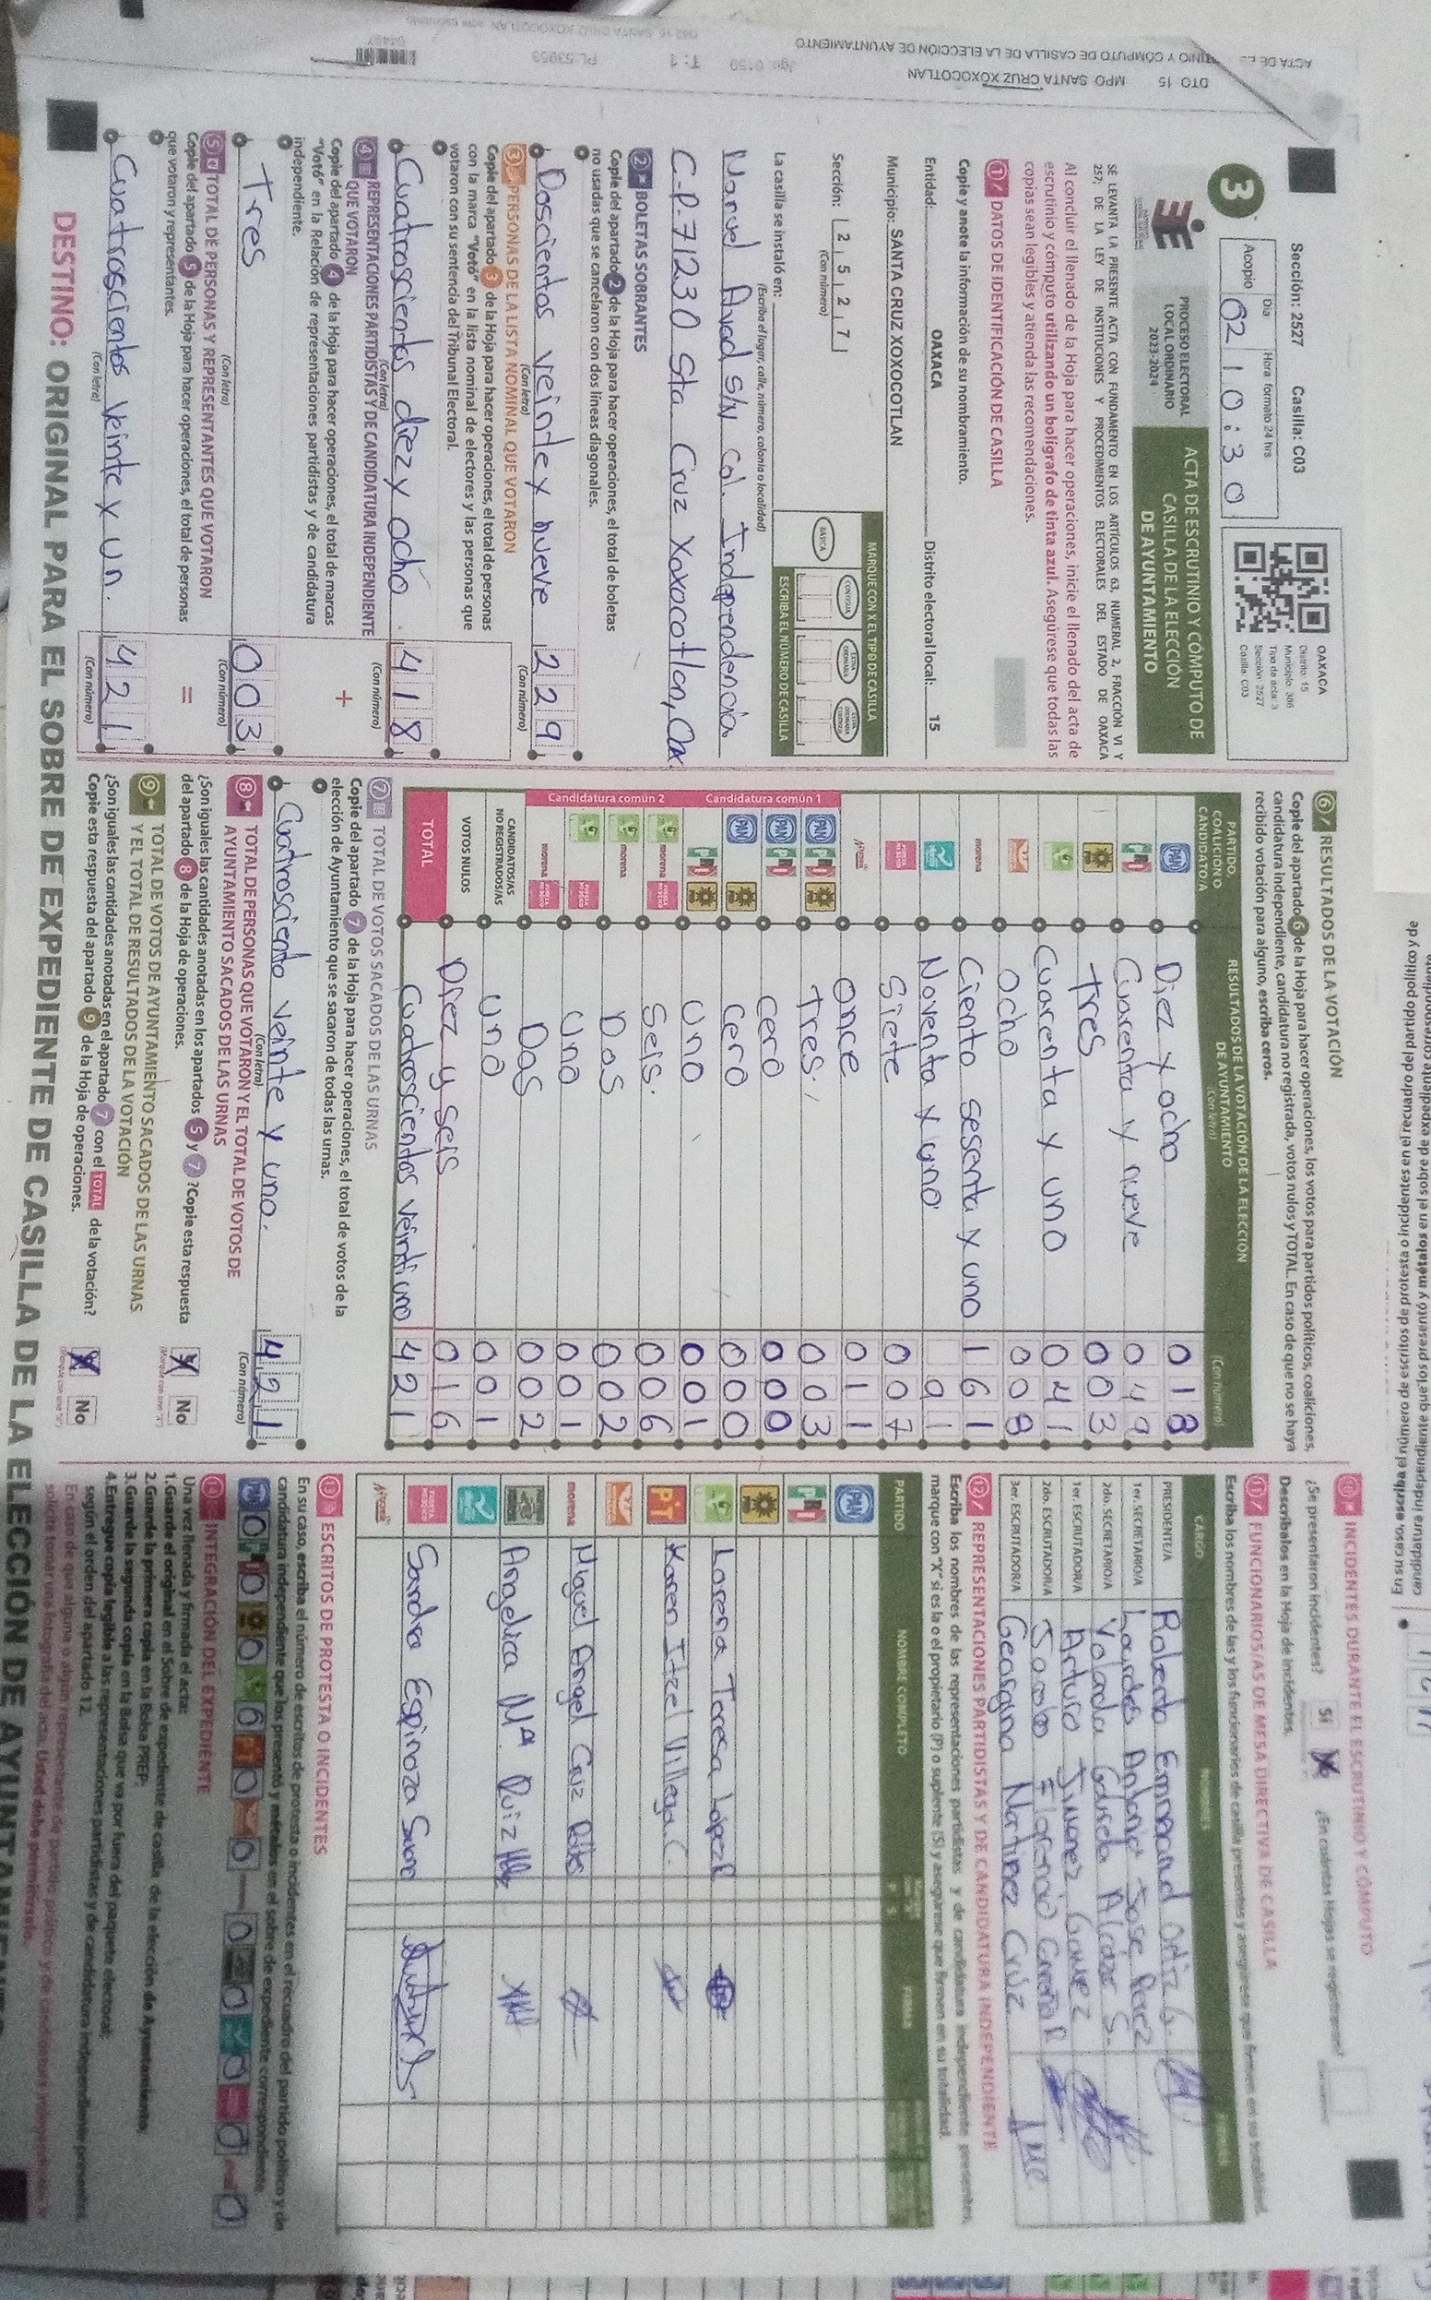 DTO 15 MPO SANTA CRUZ XOXOCOTLAN
Sección: 2527 Casilla: C03
Día
Hora formato 24 hrs
Acopio 02 10:30
OAXACA
Distrito: 15
Tipo de acta: 3
Sección: 2527
Casilla: C03
3
PROCESO ELECTORAL
LOCAL ORDINARIO
2023-2024
ACTA DE ESCRUTINIO Y CÓMPUTO DE
CASILLA DE LA ELECCIÓN
DE AYUNTAMIENTO
SE LEVANTA LA PRESENTE ACTA CON FUNDAMENTO EN LOS ARTÍCULOS 63, NUMERAL 2, FRACCIÓN VI Y
257; DE LA LEY DE INSTITUCIONES Y PROCEDIMIENTOS ELECTORALES DEL ESTADO DE OAXACA
Al concluir el llenado de la Hoja para hacer operaciones, inicie el llenado del acta de
escrutinio y cómputo utilizando un bolígrafo de tinta azul. Asegúrese que todas las
copias sean legibles y atienda las recomendaciones.
1 DATOS DE IDENTIFICACIÓN DE CASILLA
Copie y anote la información de su nombramiento.
Entidad: OAXACA Distrito electoral local: 15
Municipio: SANTA CRUZ XOXOCOTLAN
Sección: 2 5 2 7
(Con número)
MARQUE CON X EL TIPO DE CASILLA
BÁSICA
CONTIGUA
ESCRIBA EL NÚMERO DE CASILLA
La casilla se instaló en:
(Escriba el lugar, calle, número, colonia o localidad)
Manuel Ayad S/N Col. Independencia
C.P. 71230 Sta Cruz Xoxocotlan, Oax.
2 BOLETAS SOBRANTES
Copie del apartado 2 de la Hoja para hacer operaciones, el total de boletas
no usadas que se cancelaron con dos líneas diagonales.
Doscientos veinte y nueve 229
(Con letra) (Con número)
3 PERSONAS DE LA LISTA NOMINAL QUE VOTARON
Copie del apartado 3 de la Hoja para hacer operaciones, el total de personas
con la marca "Votó" en la lista nominal de electores y las personas que
votaron con su sentencia del Tribunal Electoral.
Cuatroscientos diez y ocho 418
(Con letra) (Con número)
4 REPRESENTACIONES PARTIDISTAS Y DE CANDIDATURA INDEPENDIENTE
QUE VOTARON
Copie del apartado 4 de la Hoja para hacer operaciones, el total de marcas
"Votó" en la Relación de representaciones partidistas y de candidatura
independiente.
+
Tres 003
(Con letra) (Con número)
5 TOTAL DE PERSONAS Y REPRESENTANTES QUE VOTARON
Copie del apartado 5 de la Hoja para hacer operaciones, el total de personas
que votaron y representantes.
=
Cuatroscientos Veinte y un. 421
(Con letra) (Con número)
6 RESULTADOS DE LA VOTACIÓN
Copie del apartado 6 de la Hoja para hacer operaciones, los votos para partidos políticos, coaliciones,
candidatura independiente, candidatura no registrada, votos nulos y TOTAL. En caso de que no se haya
recibido votación para alguno, escriba ceros.
PARTIDO, COALICIÓN O CANDIDATO/A
RESULTADOS DE LA VOTACIÓN DE LA ELECCIÓN
DE AYUNTAMIENTO
(Con letra) (Con número)
PAN Diez y ocho 018
PRI Cuarenta y nueve 049
Tres 003
Cuarenta y uno 041
Ocho 008
morena Ciento sesenta y uno 161
Noventa y uno 91
Siete 007
once 011
Candidatura común 1
PAN PRI Tres. 003
PAN PRI cero 000
PAN cero 000
PRI Uno 001
Candidatura común 2
morena Seis. 006
morena Dos 002
Uno 001
morena Dos 002
CANDIDATOS/AS NO REGISTRADOS/AS uno 001
VOTOS NULOS Diez y seis 016
TOTAL Cuatroscientos veinti uno 421
7 TOTAL DE VOTOS SACADOS DE LAS URNAS
Copie del apartado 7 de la Hoja para hacer operaciones, el total de votos de la
elección de Ayuntamiento que se sacaron de todas las urnas.
Cuatrosciento veinte y uno. 421
(Con letra) (Con número)
8 TOTAL DE PERSONAS QUE VOTARON Y EL TOTAL DE VOTOS DE
AYUNTAMIENTO SACADOS DE LAS URNAS
¿Son iguales las cantidades anotadas en los apartados 5 y 7? Copie esta respuesta
del apartado 8 de la Hoja de operaciones.
No
9 TOTAL DE VOTOS DE AYUNTAMIENTO SACADOS DE LAS URNAS
Y EL TOTAL DE RESULTADOS DE LA VOTACIÓN
¿Son iguales las cantidades anotadas en el apartado 7 con el TOTAL de la votación?
Copie esta respuesta del apartado 9 de la Hoja de operaciones.
No
INCIDENTES DURANTE EL ESCRUTINIO Y CÓMPUTO
¿Se presentaron incidentes? Sí
¿En cuántas Hojas se registraron?
Descríbalos en la Hoja de incidentes.
11 FUNCIONARIOS/AS DE MESA DIRECTIVA DE CASILLA
Escriba los nombres de las y los funcionarios de casilla presentes y asegúrese que firmen en su totalidad.
CARGO NOMBRES
PRESIDENTE/A Roberto Emmanuel Ortiz G.
1er. SECRETARIO/A Lourdes Antonio José Perez
2do. SECRETARIO/A
1er. ESCRUTADOR/A Arturo Jimenez Gomez
2do. ESCRUTADOR/A
3er. ESCRUTADOR/A Georgina Martinez Cruz
12 REPRESENTACIONES PARTIDISTAS Y DE CANDIDATURA INDEPENDIENTE
Escriba los nombres de las representaciones partidistas y de candidatura independiente presentes,
marque con "X" si es la o el propietario (P) o suplente (S) y asegúrese que firmen en su totalidad.
PARTIDO NOMBRE COMPLETO FIRMA
PAN
PRI
Lorena Teresa López R
PT Karen Itzel Villegas C.
morena Miguel Angel Cruz
Angelica Ma. Ruiz
Sandra Espinoza
13 ESCRITOS DE PROTESTA O INCIDENTES
En su caso, escriba el número de escritos de protesta o incidentes en el recuadro del partido político y de
candidatura independiente que los presentó y métalos en el sobre de expediente correspondiente.
14 INTEGRACIÓN DEL EXPEDIENTE
Una vez llenada y firmada el acta:
1. Guarde el original en el Sobre de expediente de casilla de la elección de Ayuntamiento;
2. Guarde la primera copia en la Bolsa PREP;
3. Guarde la segunda copia en la Bolsa que va por fuera del paquete electoral;
4. Entregue copia legible a las representaciones partidistas y de candidatura independiente presentes,
según el orden del apartado 12.
DESTINO: ORIGINAL PARA EL SOBRE DE EXPEDIENTE DE CASILLA DE LA ELECCIÓN DE AYUNTAMIENTO